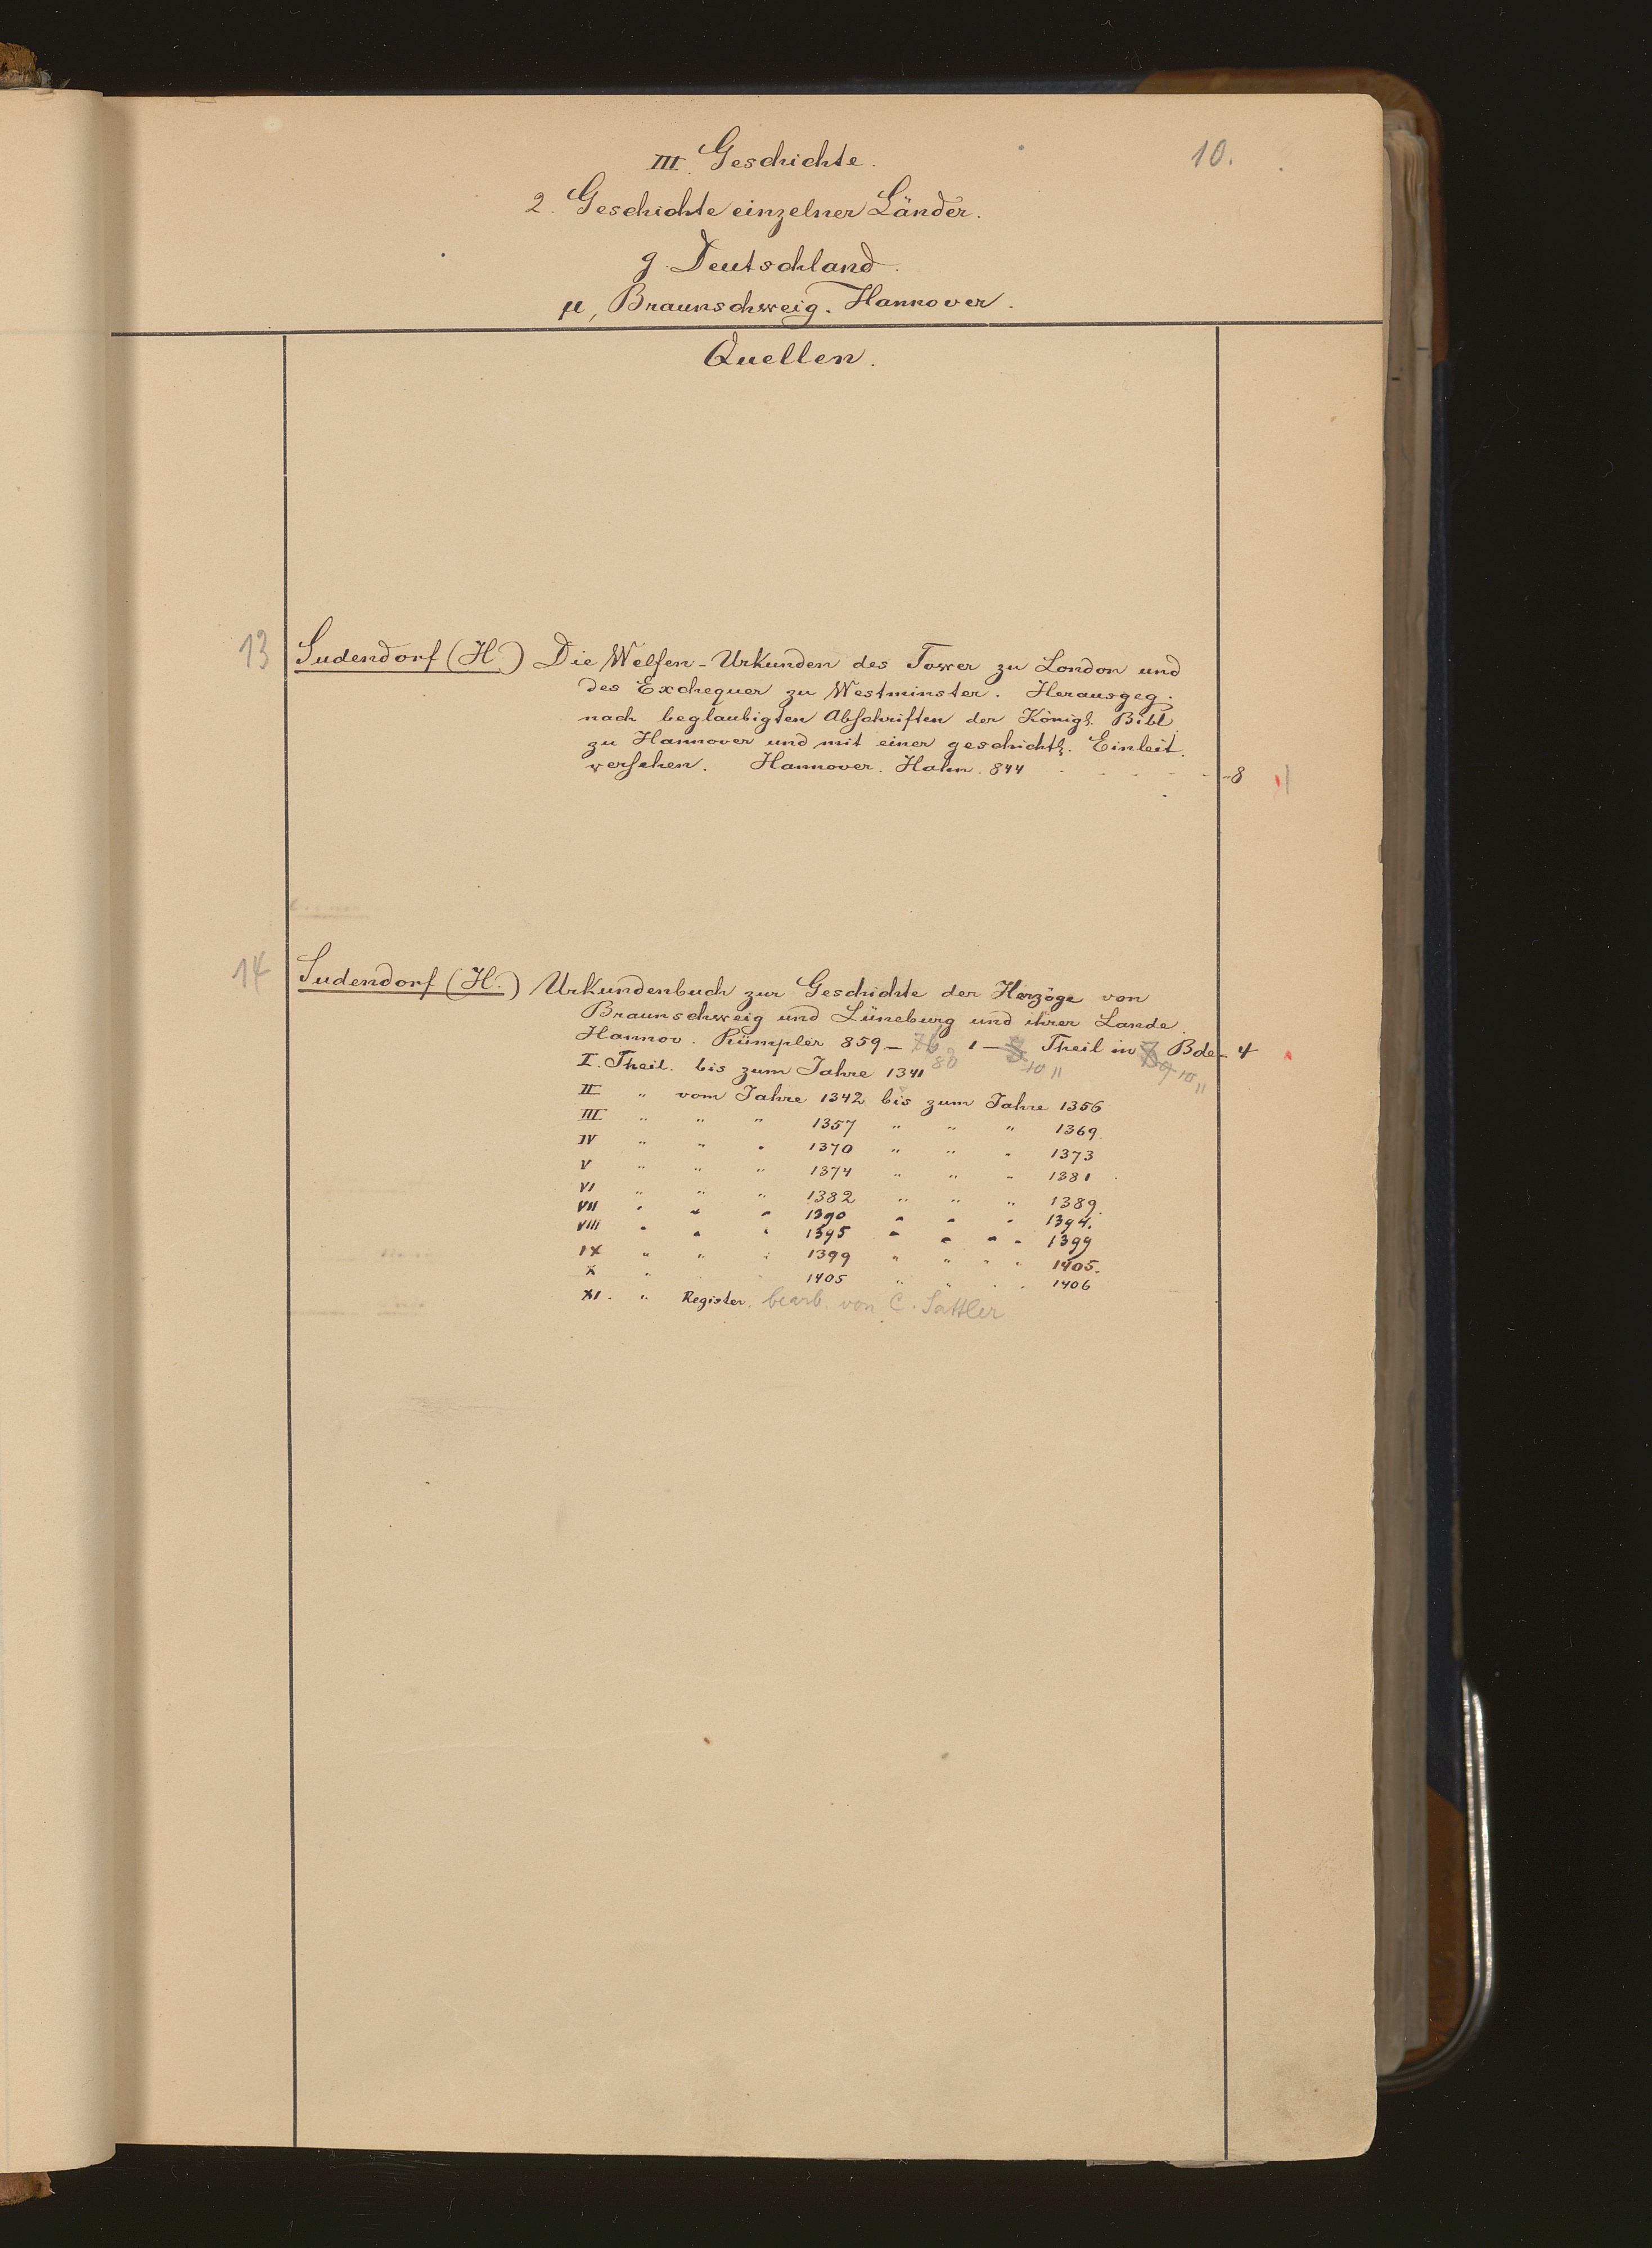 10.
III. Geschichte.
2. Geschichte einzelner Länder.
g. Deutschland.
µ, Braunschweig. Hannover.
Quellen.
13 Sudendorf (H.) Die Welfen-Urkunden des Tower zu London und
des Exchequer zu Westminster. Herausgeg.
nach beglaubigten Abschriften der Königl. Bibl.
zu Hannover und mit einer geschichtl. Einleit.
versehen. Hannover. Hahn. 844 - - - - 8
14 Sudendorf (H.) Urkundenbuch zur Geschichte der Herzöge von
Braunschweig und Lüneburg und ihrer Lande.
Hannov. Rümpler 859- 76 83 1- 10 11 Theil in 7 9 10 11 Bde - 4
I. Theil. bis zum Jahre 1341
II " vom Jahre 1342 bis zum Jahre 1356
III " " " 1357 " " " 1369.
IV " " " 1370 " " " 1373
V " " " 1374 " " " 1381.
VI " " " 1382 " " " 1389.
VII " " " 1390 " " " 1394.
VIII " " " 1395 " " " " 1399
IX " " " 1399 " " " " 1405.
X " " " 1405 " " " " 1406
XI. " Register. bearb. von C. Sattler